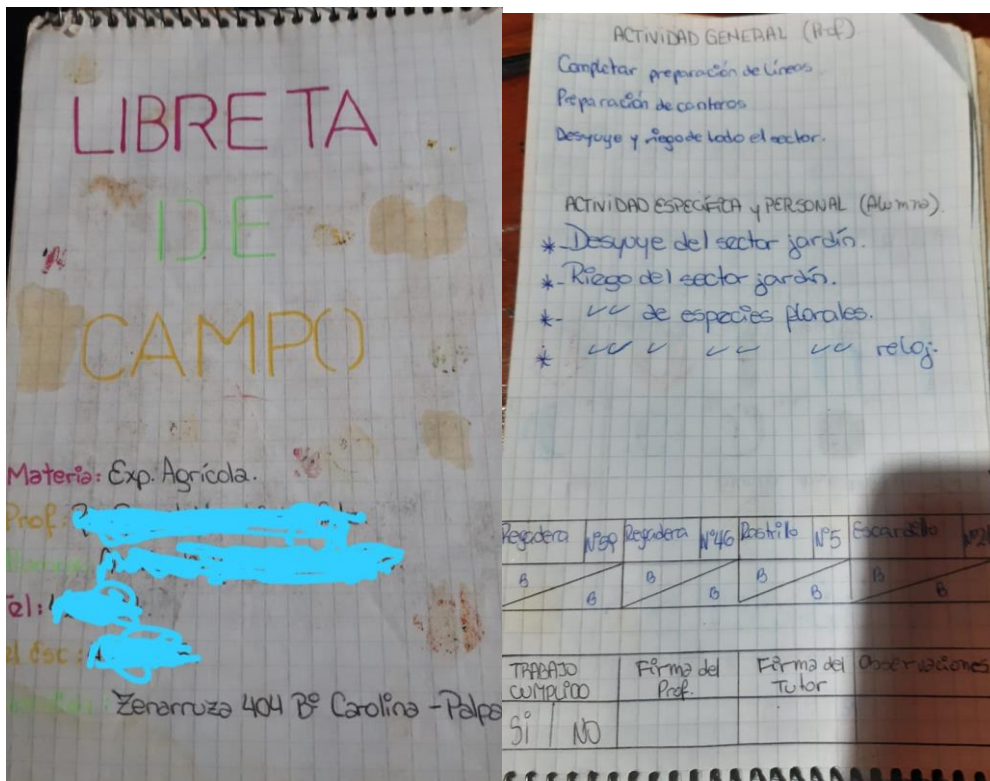 LIBRETA
DE
CAMPO
Materia: Exp. Agrícola.
Prof:
Tel:
Zenarruza 404 Bº Carolina - Palpa
ACTIVIDAD GENERAL (Prof).
Completar preparación de líneas.
Preparación de canteros
Desyuye y riego de todo el sector.
ACTIVIDAD ESPECÍFICA y PERSONAL (Alumno).
*- Desyuye del sector jardín.
*- Riego del sector jardín.
*- √√ de especies florales.
* √√ √ √√ √√ reloj.
Regadera Nº59 Regadera Nº46 Rastrillo Nº5 Escardillo
B B B B B B B B
TRABAJO CUMPLIDO Firma del Prof. Firma del Tutor Observaciones
SI NO